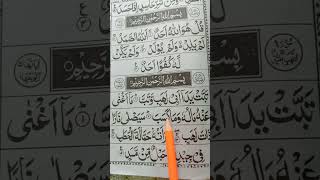 بِسْمِ اللهِ الرَّحْمٰنِ الرَّحِيْمِ
قُلْ هُوَ اللّٰهُ اَحَدٌ ۚ اَللّٰهُ الصَّمَدُ ۚ
لَمْ يَلِدْ ۙ وَلَمْ يُوْلَدْ ۙ وَلَمْ يَكُنْ
لَّهٗ كُفُوًا اَحَدٌ
بِسْمِ اللهِ الرَّحْمٰنِ الرَّحِيْمِ
تَبَّتْ يَدَآ اَبِيْ لَهَبٍ وَّتَبَّ ؕ مَآ اَغْنٰى
عَنْهُ مَالُهٗ وَمَا كَسَبَ ؕ سَيَصْلٰى نَارًا
ذَاتَ لَهَبٍ حَمَّالَةَ الْحَطَبِ
فِيْ جِيْدِهَا حَبْلٌ مِّنْ مَّسَدٍ